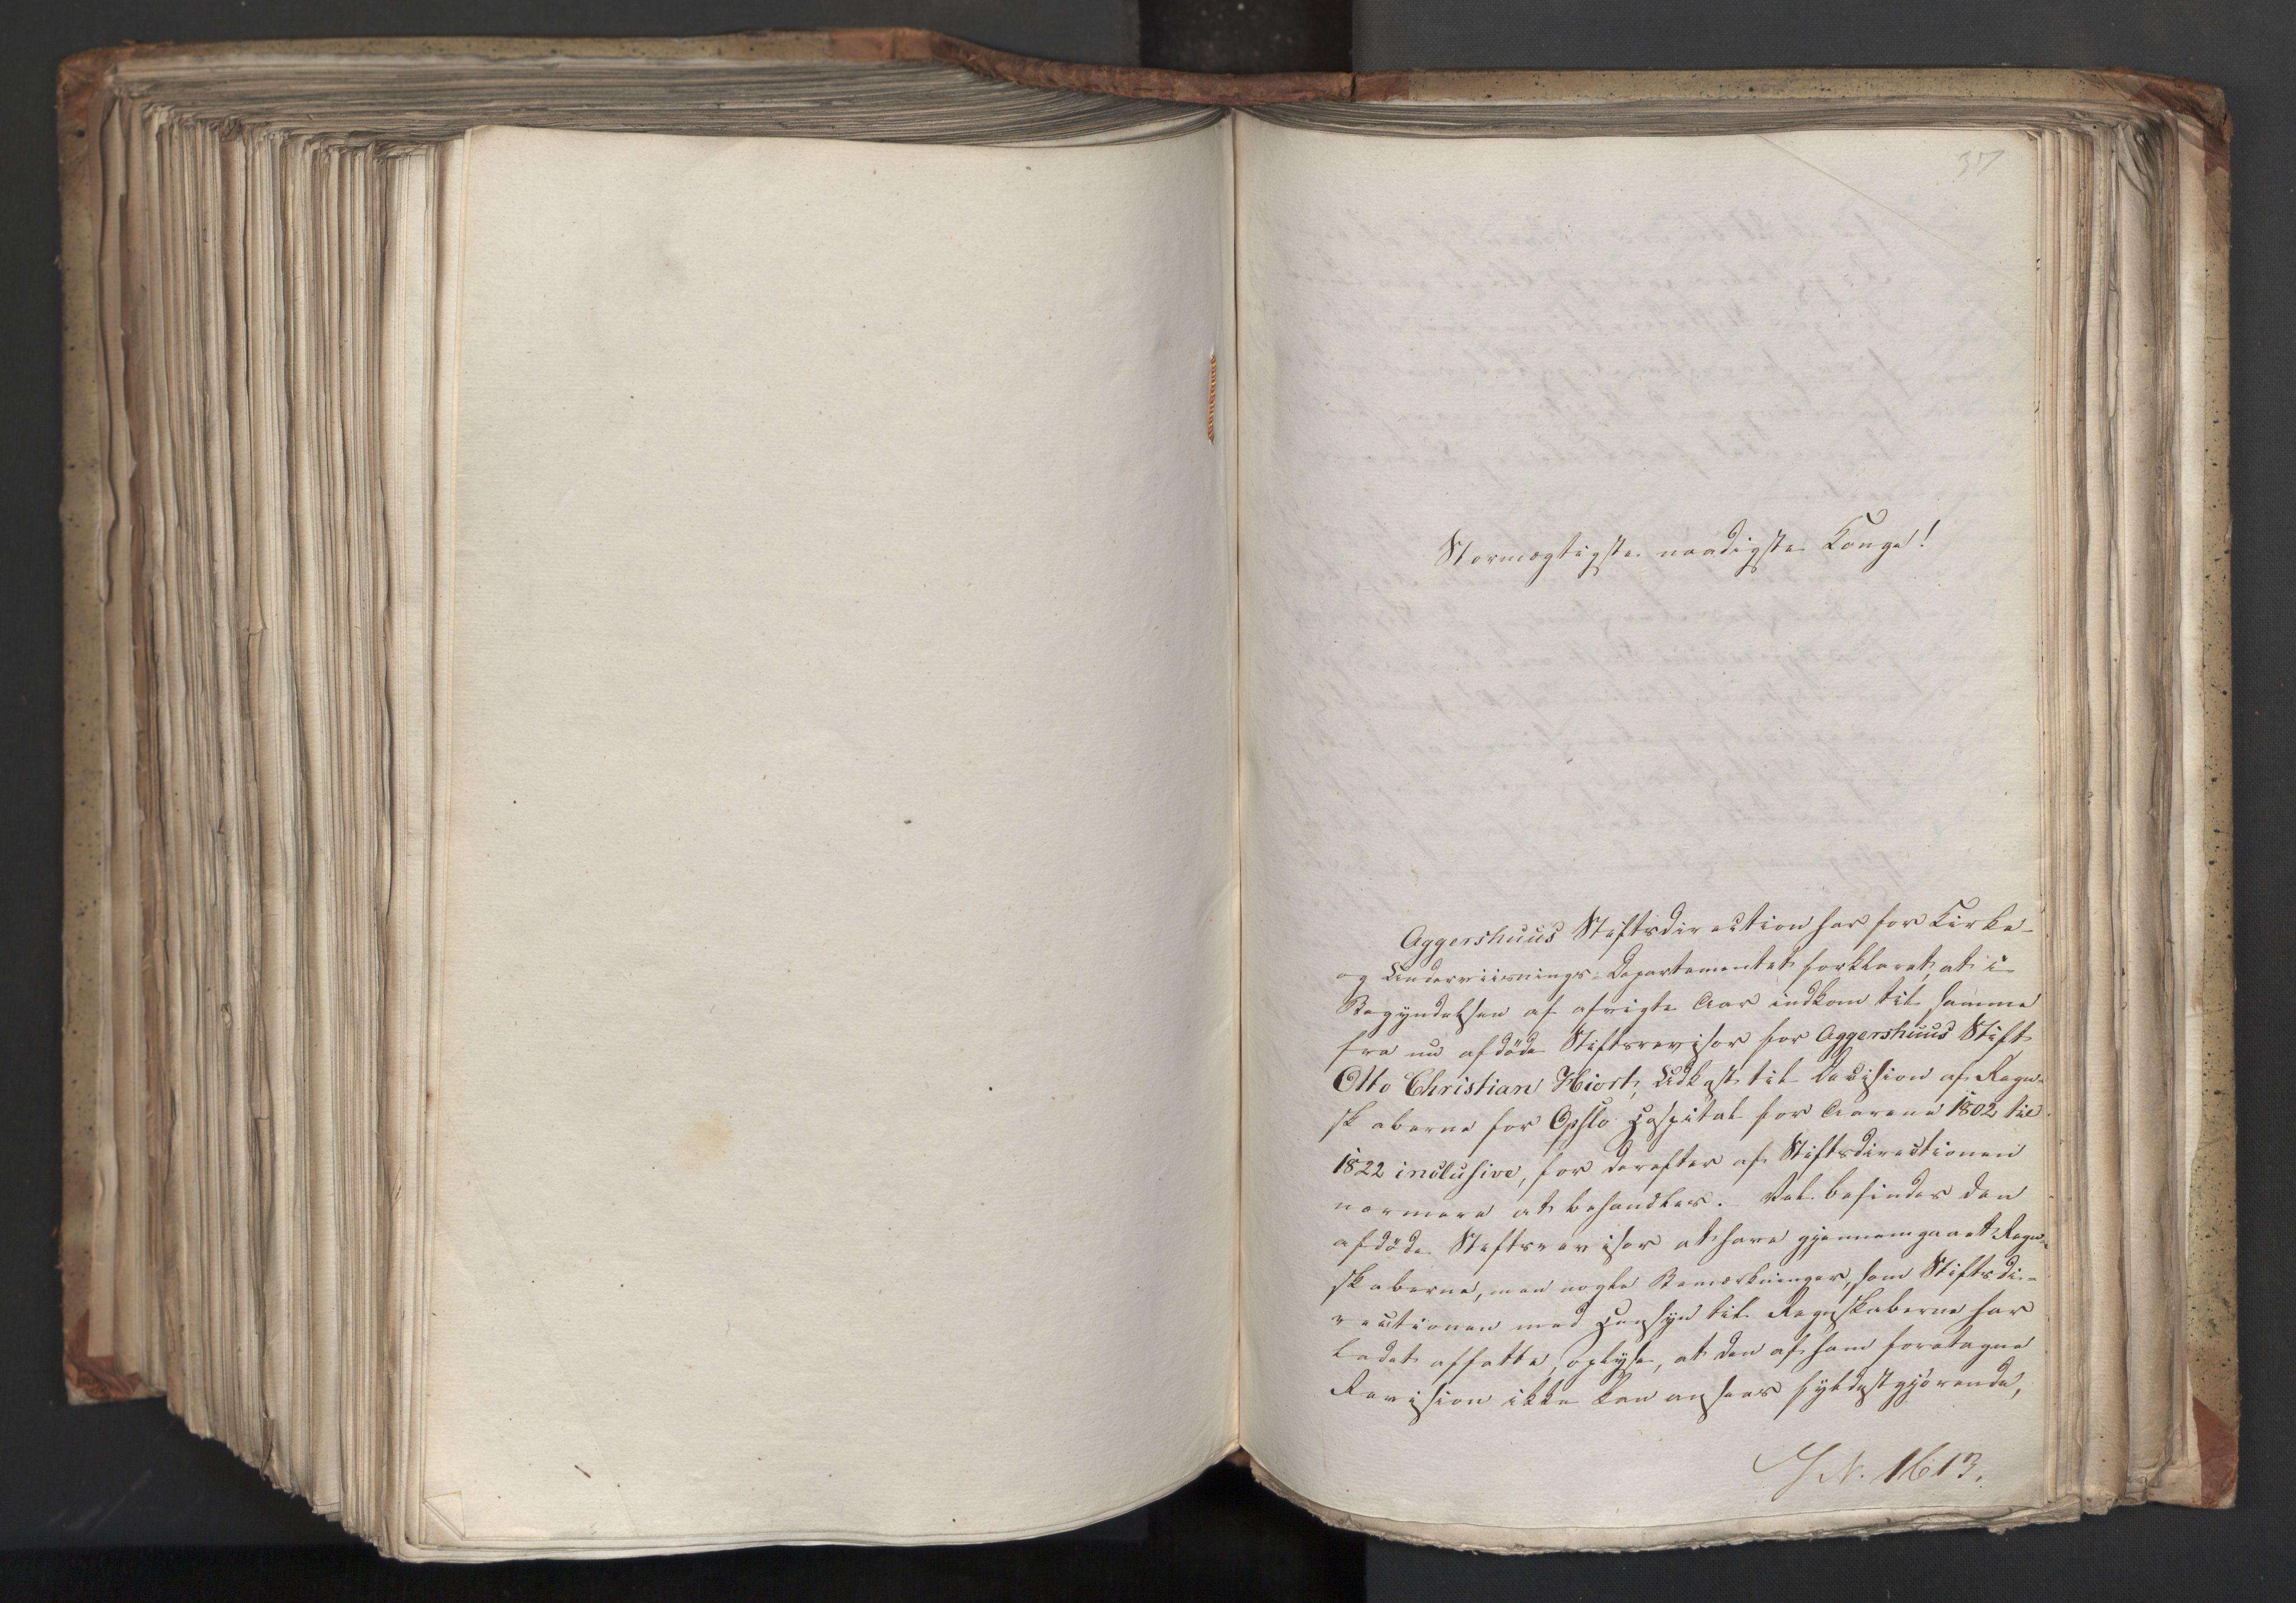 37
Stormægtigste naadigste Konge!
Aggershuus Stiftsdirection har for Kirke-
og Underviisnings-Departementet forklaret, at i
Begyndelsen af afvigte Aar indkom til samme
fra nu afdöde Stiftsrevisor for Aggershuus Stift
Otto Christian Hiort, Udkast til Decision af Regn-
skaberne for Opslo Hospital for Aarene 1802 til
1822 inclusive, for derefter af Stiftsdirectionen
nærmere at behandles. Vel befindes den
afdöde Stiftsrevisor at have gjennemgaaet Regn-
skaberne, men nogle Bemærkninger, som Stiftsdi-
rectionen med Hensyn til Regnskaberne har
ladet affatte, oplyse, at den af ham foretagne
Revision ikke kan ansees fyldestgjörende,
N. 1613.